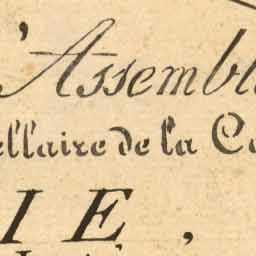 'Assembl
ellaire de la Co
IE,